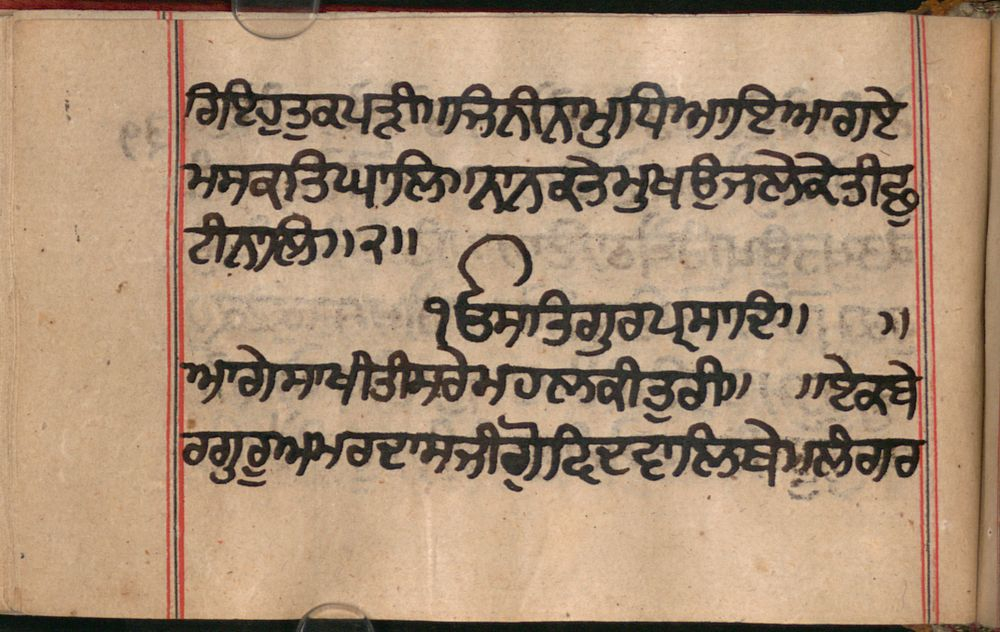 ਗਿਇਹੁਤੁਕਪੜੀ॥ਜਿਨੀਨਾਮੁਧਿਆਇਆਗਏ
ਮਸਕਤਿਘਾਲਿ॥ਨਨਕਤੇਮੁਖਉਜਲੇਕੇਤੀਛੁ
ਟੀਨਾਲਿ॥੨॥
੧ਓਸਤਿਗੁਰਪ੍ਰਸਾਦਿ॥ ॥
ਆਗੇਸਾਖੀਤੀਸਰੇਮਹਲਕੀਤੁਰੀ॥ ॥ਏਕਬੇ
ਰਗੁਰੁਅਮਰਦਾਸਜੀਗੋਇੰਦਵਾਲਿਬੇਮੁਲੀਗਰ